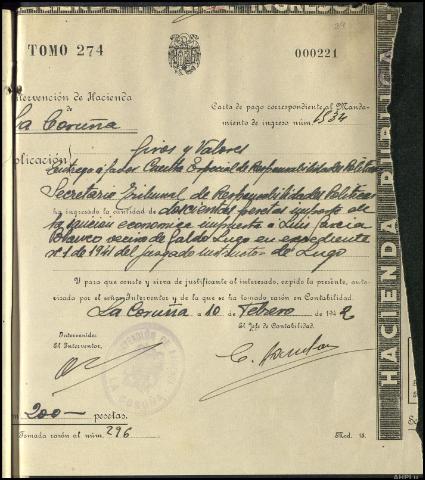 29
TOMO 274
000221
Intervención de Hacienda
de
La Coruña
Carta de pago correspondiente al Manda-
miento de ingreso núm. 1534
Giros y Valores
plicación
Entrega a favor Cuenta Especial de Responsabilidades Políticas
Secretario Tribunal de Responsabilidades Políticas
ha ingresado la cantidad de doscientas pesetas importe de
la sanción económica impuesta a Luis García
Blanco vecino de Lugo en expediente
nº 1 de 1941 del juzgado instructor de Lugo
Y para que conste y sirva de justificante al interesado, expido la presente, auto-
rizada por el señor Interventor y de la que se ha tomado razón en Contabilidad.
La Coruña a 10 de Febrero de 1942
Intervenido:
El Interventor,
El Jefe de Contabilidad.
LA CORUÑA
on 200- pesetas.
Tomada razón al núm. 296
Mod. 15.
HACIENDA PUBLICA
AHPLu